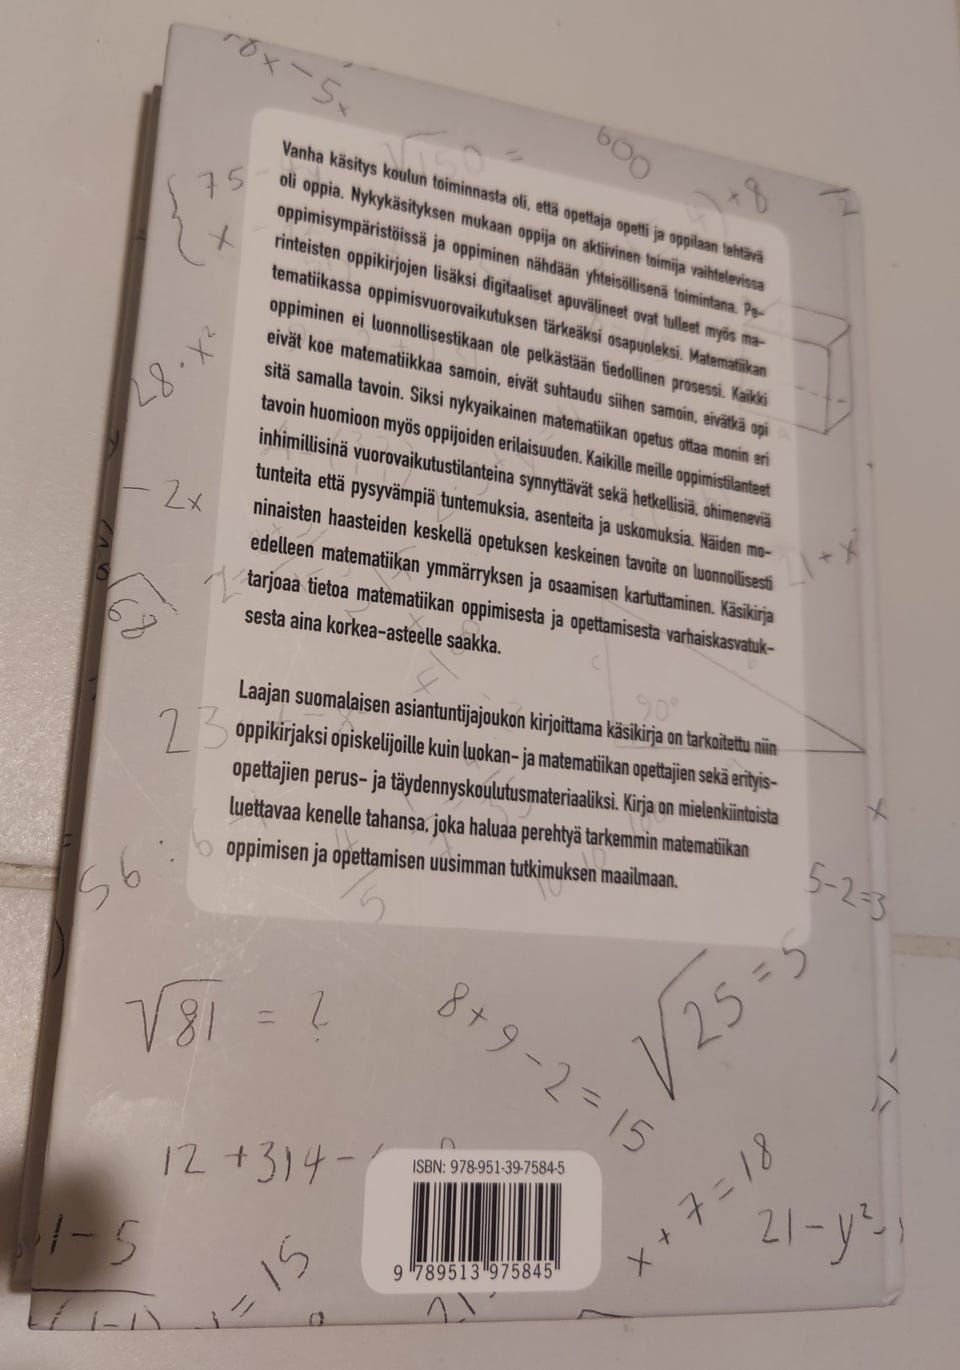 8x - 5x
600
√150 =
75
x
+8
Vanha käsitys koulun toiminnasta oli, että opettaja opetti ja oppilaan tehtävä
oli oppia. Nykykäsityksen mukaan oppija on aktiivinen toimija vaihtelevissa
oppimisympäristöissä ja oppiminen nähdään yhteisöllisenä toimintana. Pe-
rinteisten oppikirjojen lisäksi digitaaliset apuvälineet ovat tulleet myös ma-
tematiikassa oppimisvuorovaikutuksen tärkeäksi osapuoleksi. Matematiikan
oppiminen ei luonnollisestikaan ole pelkästään tiedollinen prosessi. Kaikki
eivät koe matematiikkaa samoin, eivät suhtaudu siihen samoin, eivätkä opi
sitä samalla tavoin. Siksi nykyaikainen matematiikan opetus ottaa monin eri
tavoin huomioon myös oppijoiden erilaisuuden. Kaikille meille oppimistilanteet
inhimillisinä vuorovaikutustilanteina synnyttävät sekä hetkellisiä, ohimeneviä
tunteita että pysyvämpiä tuntemuksia, asenteita ja uskomuksia. Näiden mo-
ninaisten haasteiden keskellä opetuksen keskeinen tavoite on luonnollisesti
edelleen matematiikan ymmärryksen ja osaamisen kartuttaminen. Käsikirja
tarjoaa tietoa matematiikan oppimisesta ja opettamisesta varhaiskasvatuk-
sesta aina korkea-asteelle saakka.
28 · x²
- 2x
68
21 + x
90°
23
Laajan suomalaisen asiantuntijajoukon kirjoittama käsikirja on tarkoitettu niin
oppikirjaksi opiskelijoille kuin luokan- ja matematiikan opettajien sekä erityis-
opettajien perus- ja täydennyskoulutusmateriaaliksi. Kirja on mielenkiintoista
luettavaa kenelle tahansa, joka haluaa perehtyä tarkemmin matematiikan
oppimisen ja opettamisen uusimman tutkimuksen maailmaan.
56 : 6
5-2=3
√81 = ?
8x9-2=15
√25 = 5
12 + 314 -
x + 7 = 18
21 - y² -
1 - 5
= 15
ISBN: 978-951-39-7584-5
9 789513 975845